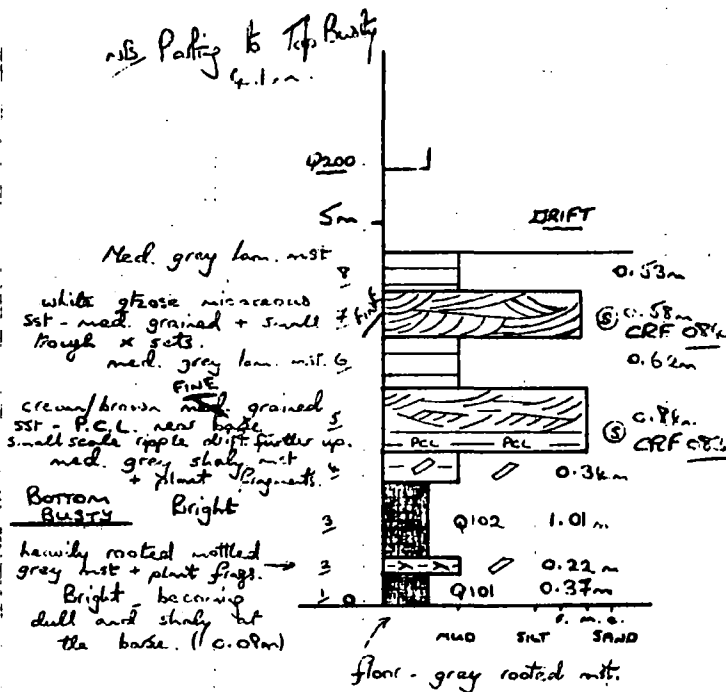 Parting to Top Busty
4.1m.
Q200
5m
DRIFT
Med. grey lam. mst
8
0.53m
white qtzose micaceous
sst - med. grained + small
trough x sets.
7
FINE
Ⓢ 0.58m
CRF
med. grey lam. mst.
6
FINE
cream/brown med. grained
sst - P.C.L. near base
small scale ripple drift further up.
5
PCL PCL
Ⓢ
CRF
med. grey shaly mst
+ plant fragments.
4
BOTTOM
BUSTY
Bright
3
Q102 1.01m
heavily rooted mottled
grey mst + plant frags. →
2
0.22m
Bright becoming
dull and shaly at
the base. (0.09m)
1
0
Q101 0.37m
MUD SILT f. m. c. SAND
floor - grey rooted mst.